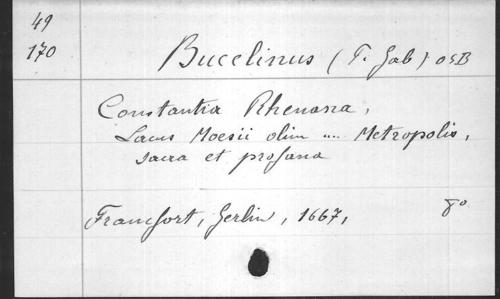 49
170
Bucelinus (P. Gab) OSB
Constantia Rhenana,
Lacus Moesii olim .... Metropolis,
sacra et profana
Francfort, Gerlin, 1667,
8°